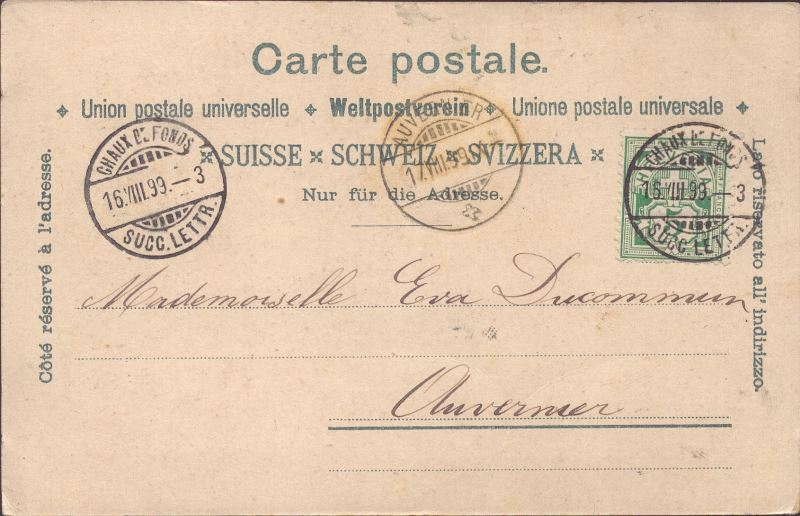 Carte postale.
Union postale universelle Weltpostverein Unione postale universale
SUISSE SCHWEIZ SVIZZERA
Nur für die Adresse.
Côté réservé à l'adresse.
Lato riservato all' indirizzo.
CHAUX DE FONDS
16.VIII.99.–3
SUCC.LETTR.
AUVERNIER
17.VIII.99.
CHAUX DE FONDS
16.VIII.99.–3
SUCC.LETTR.
Mademoiselle Eva Ducommun
Auvernier